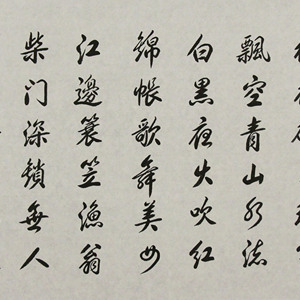 飄空青山水流
白黑夜火吹紅
錦帳歌舞美女
江邊蓑笠漁翁
柴门深鎖無人